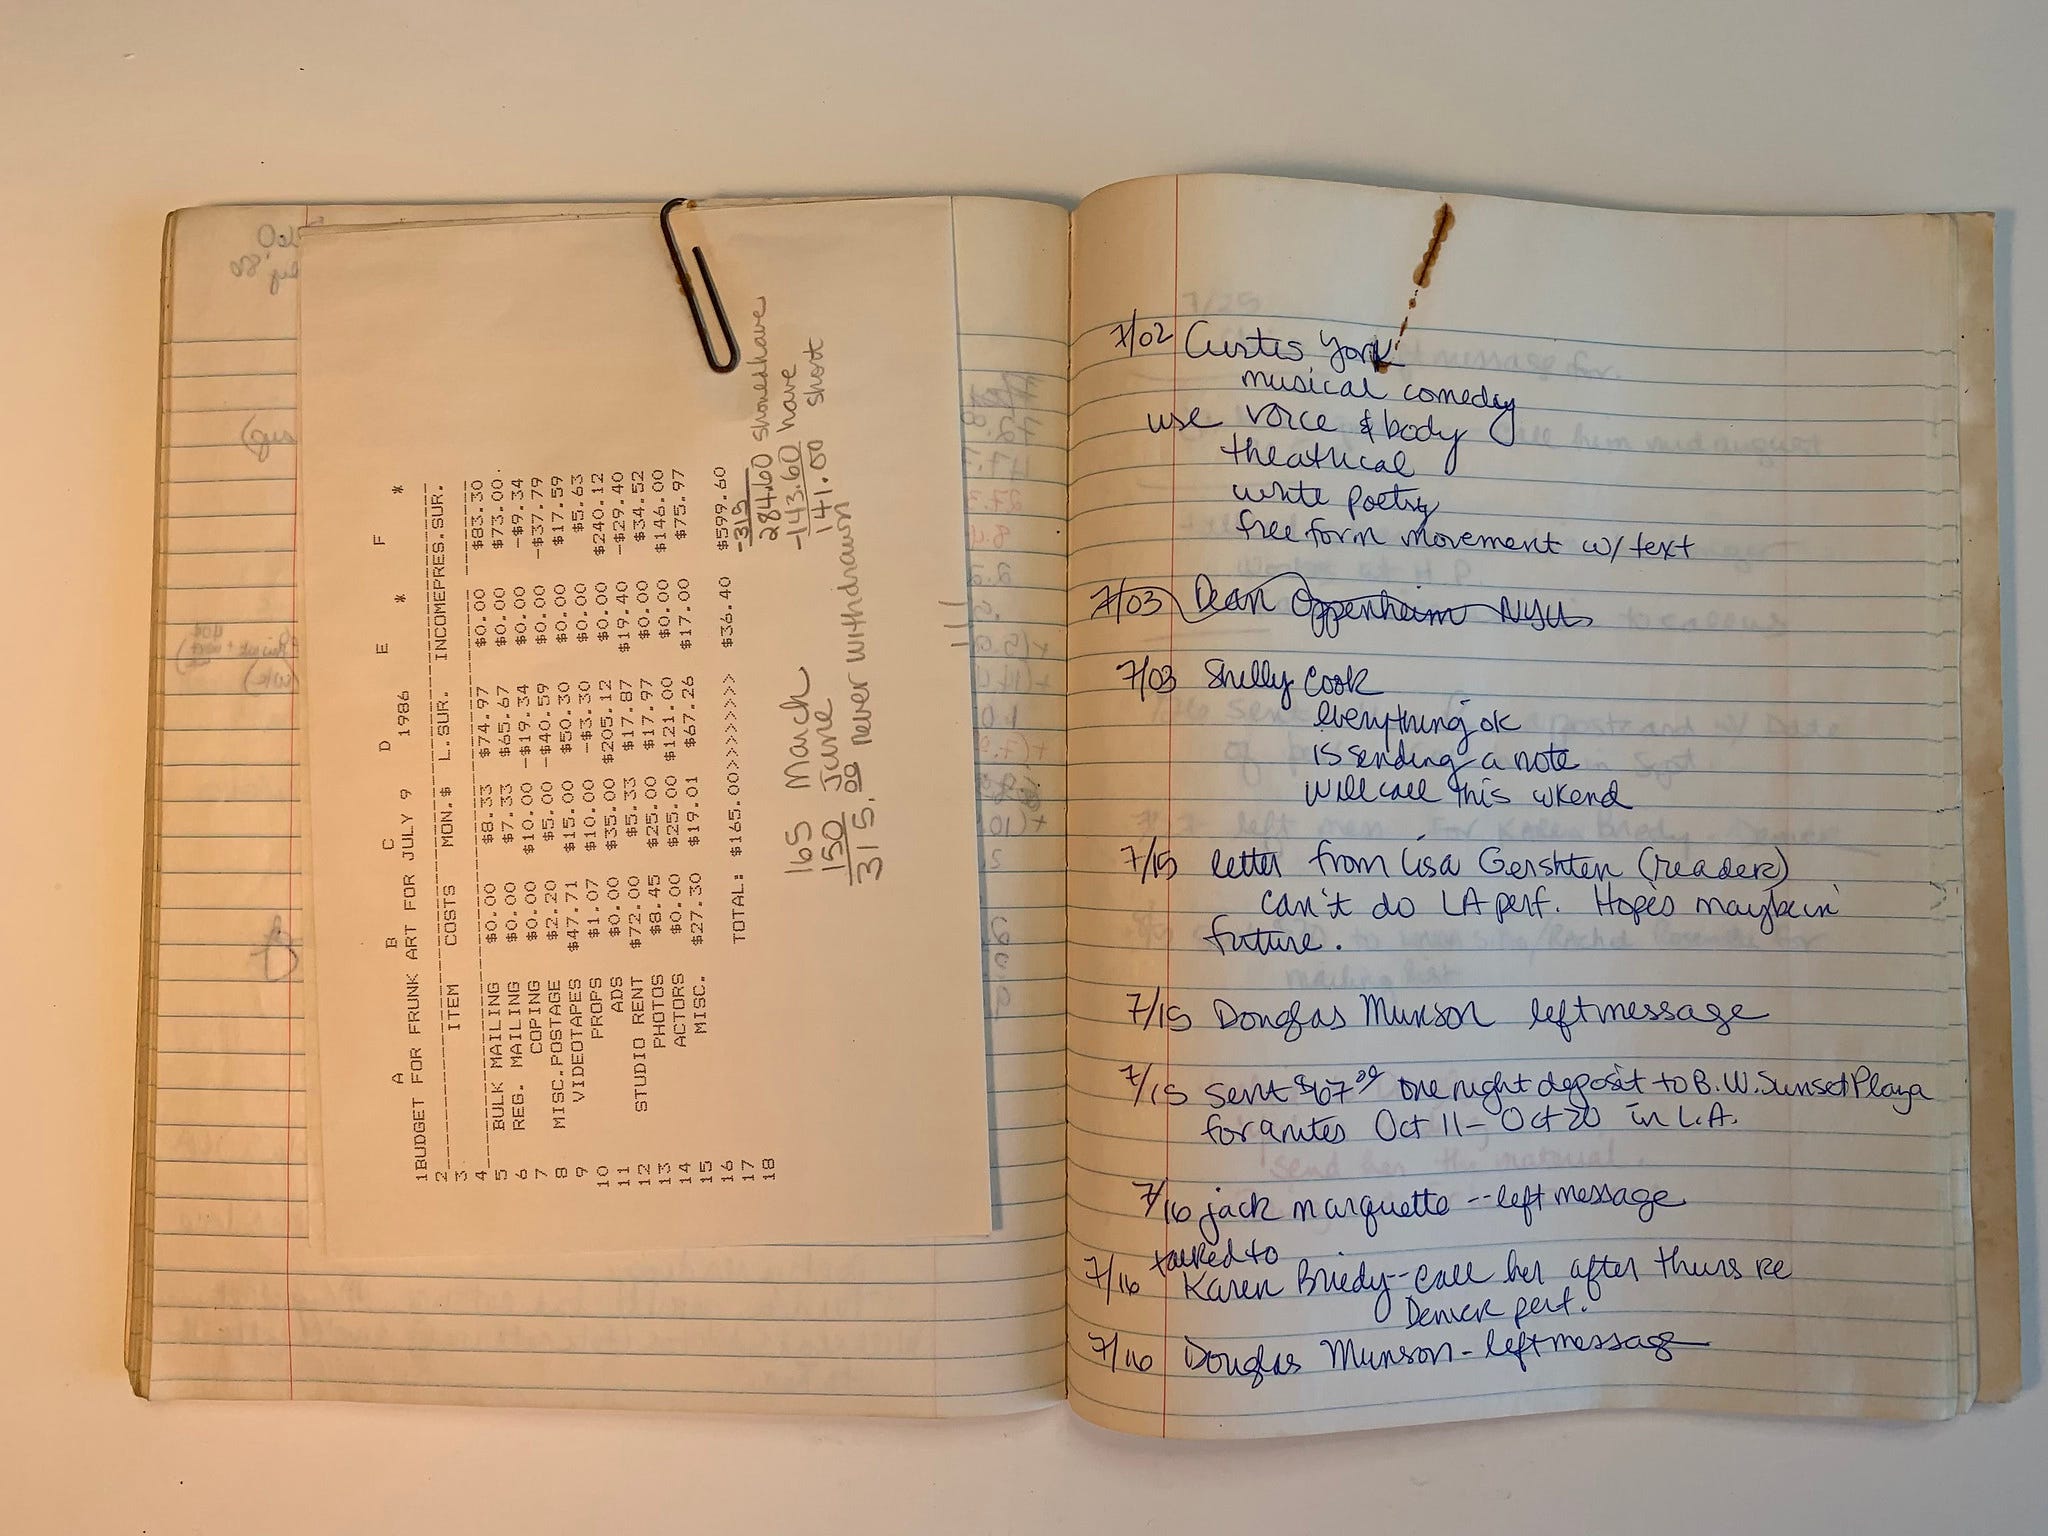 A B C D E * F *
1BUDGET FOR FRUNK ART FOR JULY 9 1986
2
3 ITEM COSTS MON.$ L.SUR. INCOMEPRES.SUR.
4
5 BULK MAILING $0.00 $8.33 $74.97 $0.00 $83.30
6 REG. MAILING $0.00 $7.33 $65.67 $0.00 $73.00
7 COPING $0.00 $10.00 -$19.34 $0.00 -$9.34
8 MISC.POSTAGE $2.20 $5.00 -$40.59 $0.00 -$37.79
9 VIDEOTAPES $47.71 $15.00 $50.30 $0.00 $17.59
10 PROPS $1.07 $10.00 -$3.30 $0.00 $5.63
11 ADS $0.00 $35.00 $205.12 $0.00 $240.12
12 STUDIO RENT $72.00 $5.33 $17.87 $19.40 -$29.40
13 PHOTOS $8.45 $25.00 $17.97 $0.00 $34.52
14 ACTORS $0.00 $25.00 $121.00 $0.00 $146.00
15 MISC. $27.30 $19.01 $67.26 $17.00 $75.97
16
17 TOTAL: $165.00>>>>>>>>> $36.40 $599.60
18
-315
284.60 should have
-143.60 have
141.00 short
165 March
150 June
315.00 never withdrawn
7/02 Curtis York
musical comedy
use voice & body
theatrical
write poetry
free form movement w/ text
7/03 Dean Oppenheim NYU
7/03 Shelly Cook
everything ok
is sending a note
will call this wkend
7/15 letter from Lisa Gershten (reader)
can't do LA perf. Hopes maybe in
future.
7/15 Douglas Munson left message
7/15 sent $67.09 one night deposit to B.W. Sunset Plaza
for 9 nites Oct 11 - Oct 20 in L.A.
7/16 jack marquette -- left message
talked to
7/16 Karen Briedy -- call her after thurs re
Denver perf.
7/16 Douglas Munson - left message